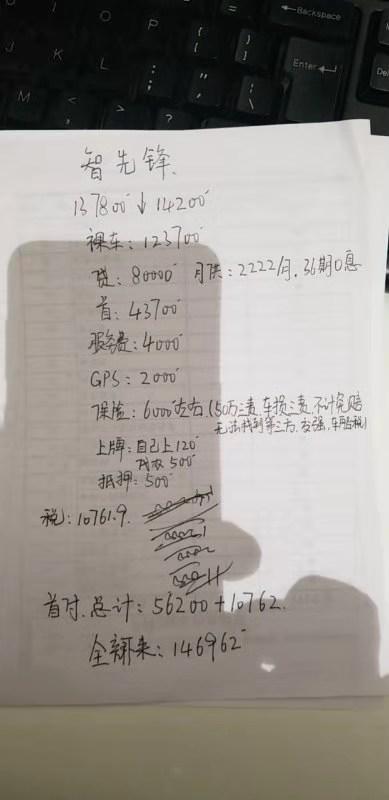 Backspace
Enter
I
O
P
J
K
L
M
智先锋
137800 ↓ 14200
裸车: 123700
贷: 80000 月供: 2222/月. 36期0息
首: 43700
服务费: 4000
GPS: 2000
保险: 6000左右.(50万三责.车损三责.不计免赔
无法找到第三方.交强.车船税)
上牌: 自己上120
代办 500
抵押: 500
税: 10761.9.
首付.总计: 56200+10762.
全部下来: 146962